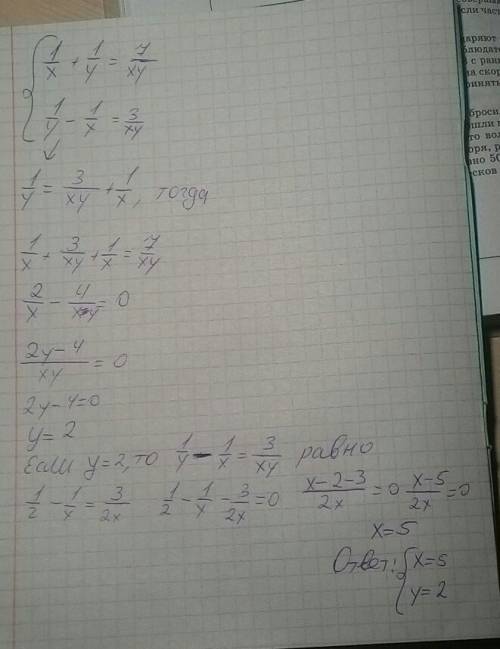 { 1/x + 1/y = 7/xy
1/y - 1/x = 3/xy
1/y = 3/xy + 1/x, тогда
1/x + 3/xy + 1/x = 7/xy
2/x - 4/xy = 0
(2y-4)/xy = 0
2y-4=0
y=2
Если y=2, то 1/y - 1/x = 3/xy равно
1/2 - 1/x = 3/2x 1/2 - 1/x - 3/2x = 0 (x-2-3)/2x = 0 (x-5)/2x = 0
x=5
Ответ: { x=5
y=2
если час
даряют
блюдат
с ран
на скор
принять
бросил
шли
то вол
оря, р
ано 50
сков